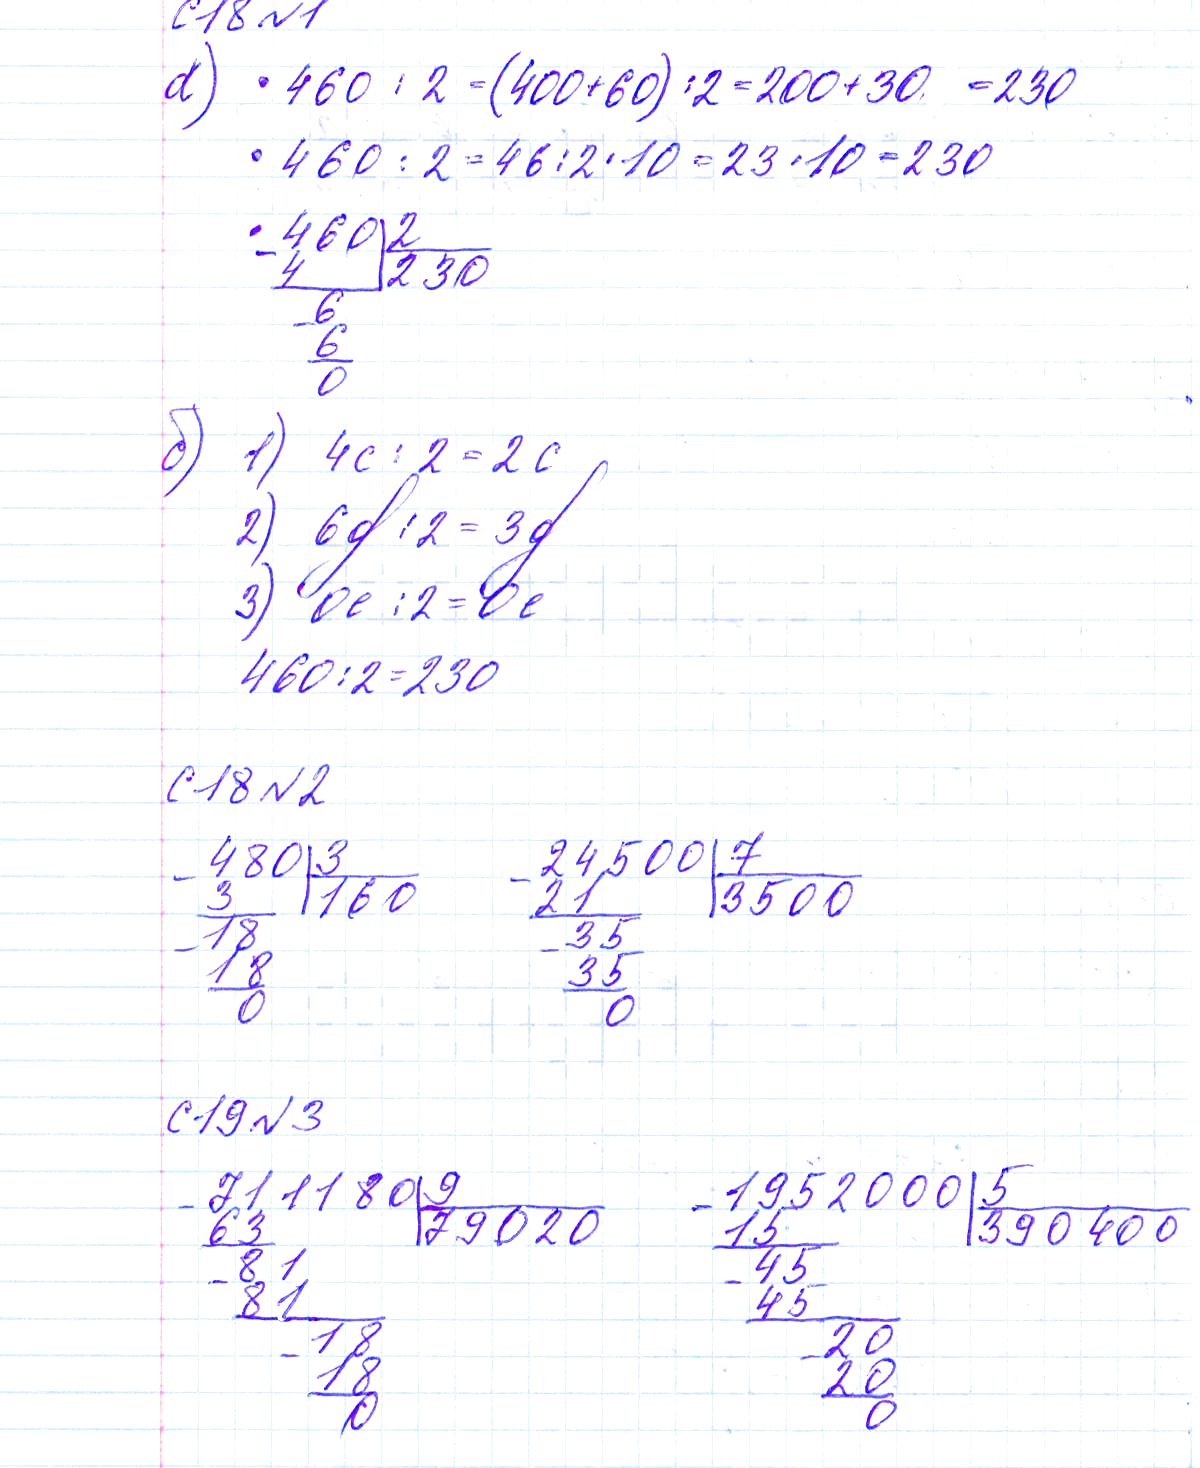 С18 №1
а) • 460 : 2 = (400+60) : 2 = 200 + 30 = 230
• 460 : 2 = 46 : 2 · 10 = 23 · 10 = 230
• - 460 | 2
4 | 230
- 6
6
0
б) 1) 4с : 2 = 2с
2) 6д : 2 = 3д
3) 0е : 2 = 0е
460 : 2 = 230
С18 №2
- 480 | 3
3 | 160
- 18
18
0
- 24500 | 7
21 | 3500
- 35
35
0
С19 №3
- 711180 | 9
63 | 79020
- 81
81
- 18
18
0
- 1952000 | 5
15 | 390400
- 45
45
- 20
20
0